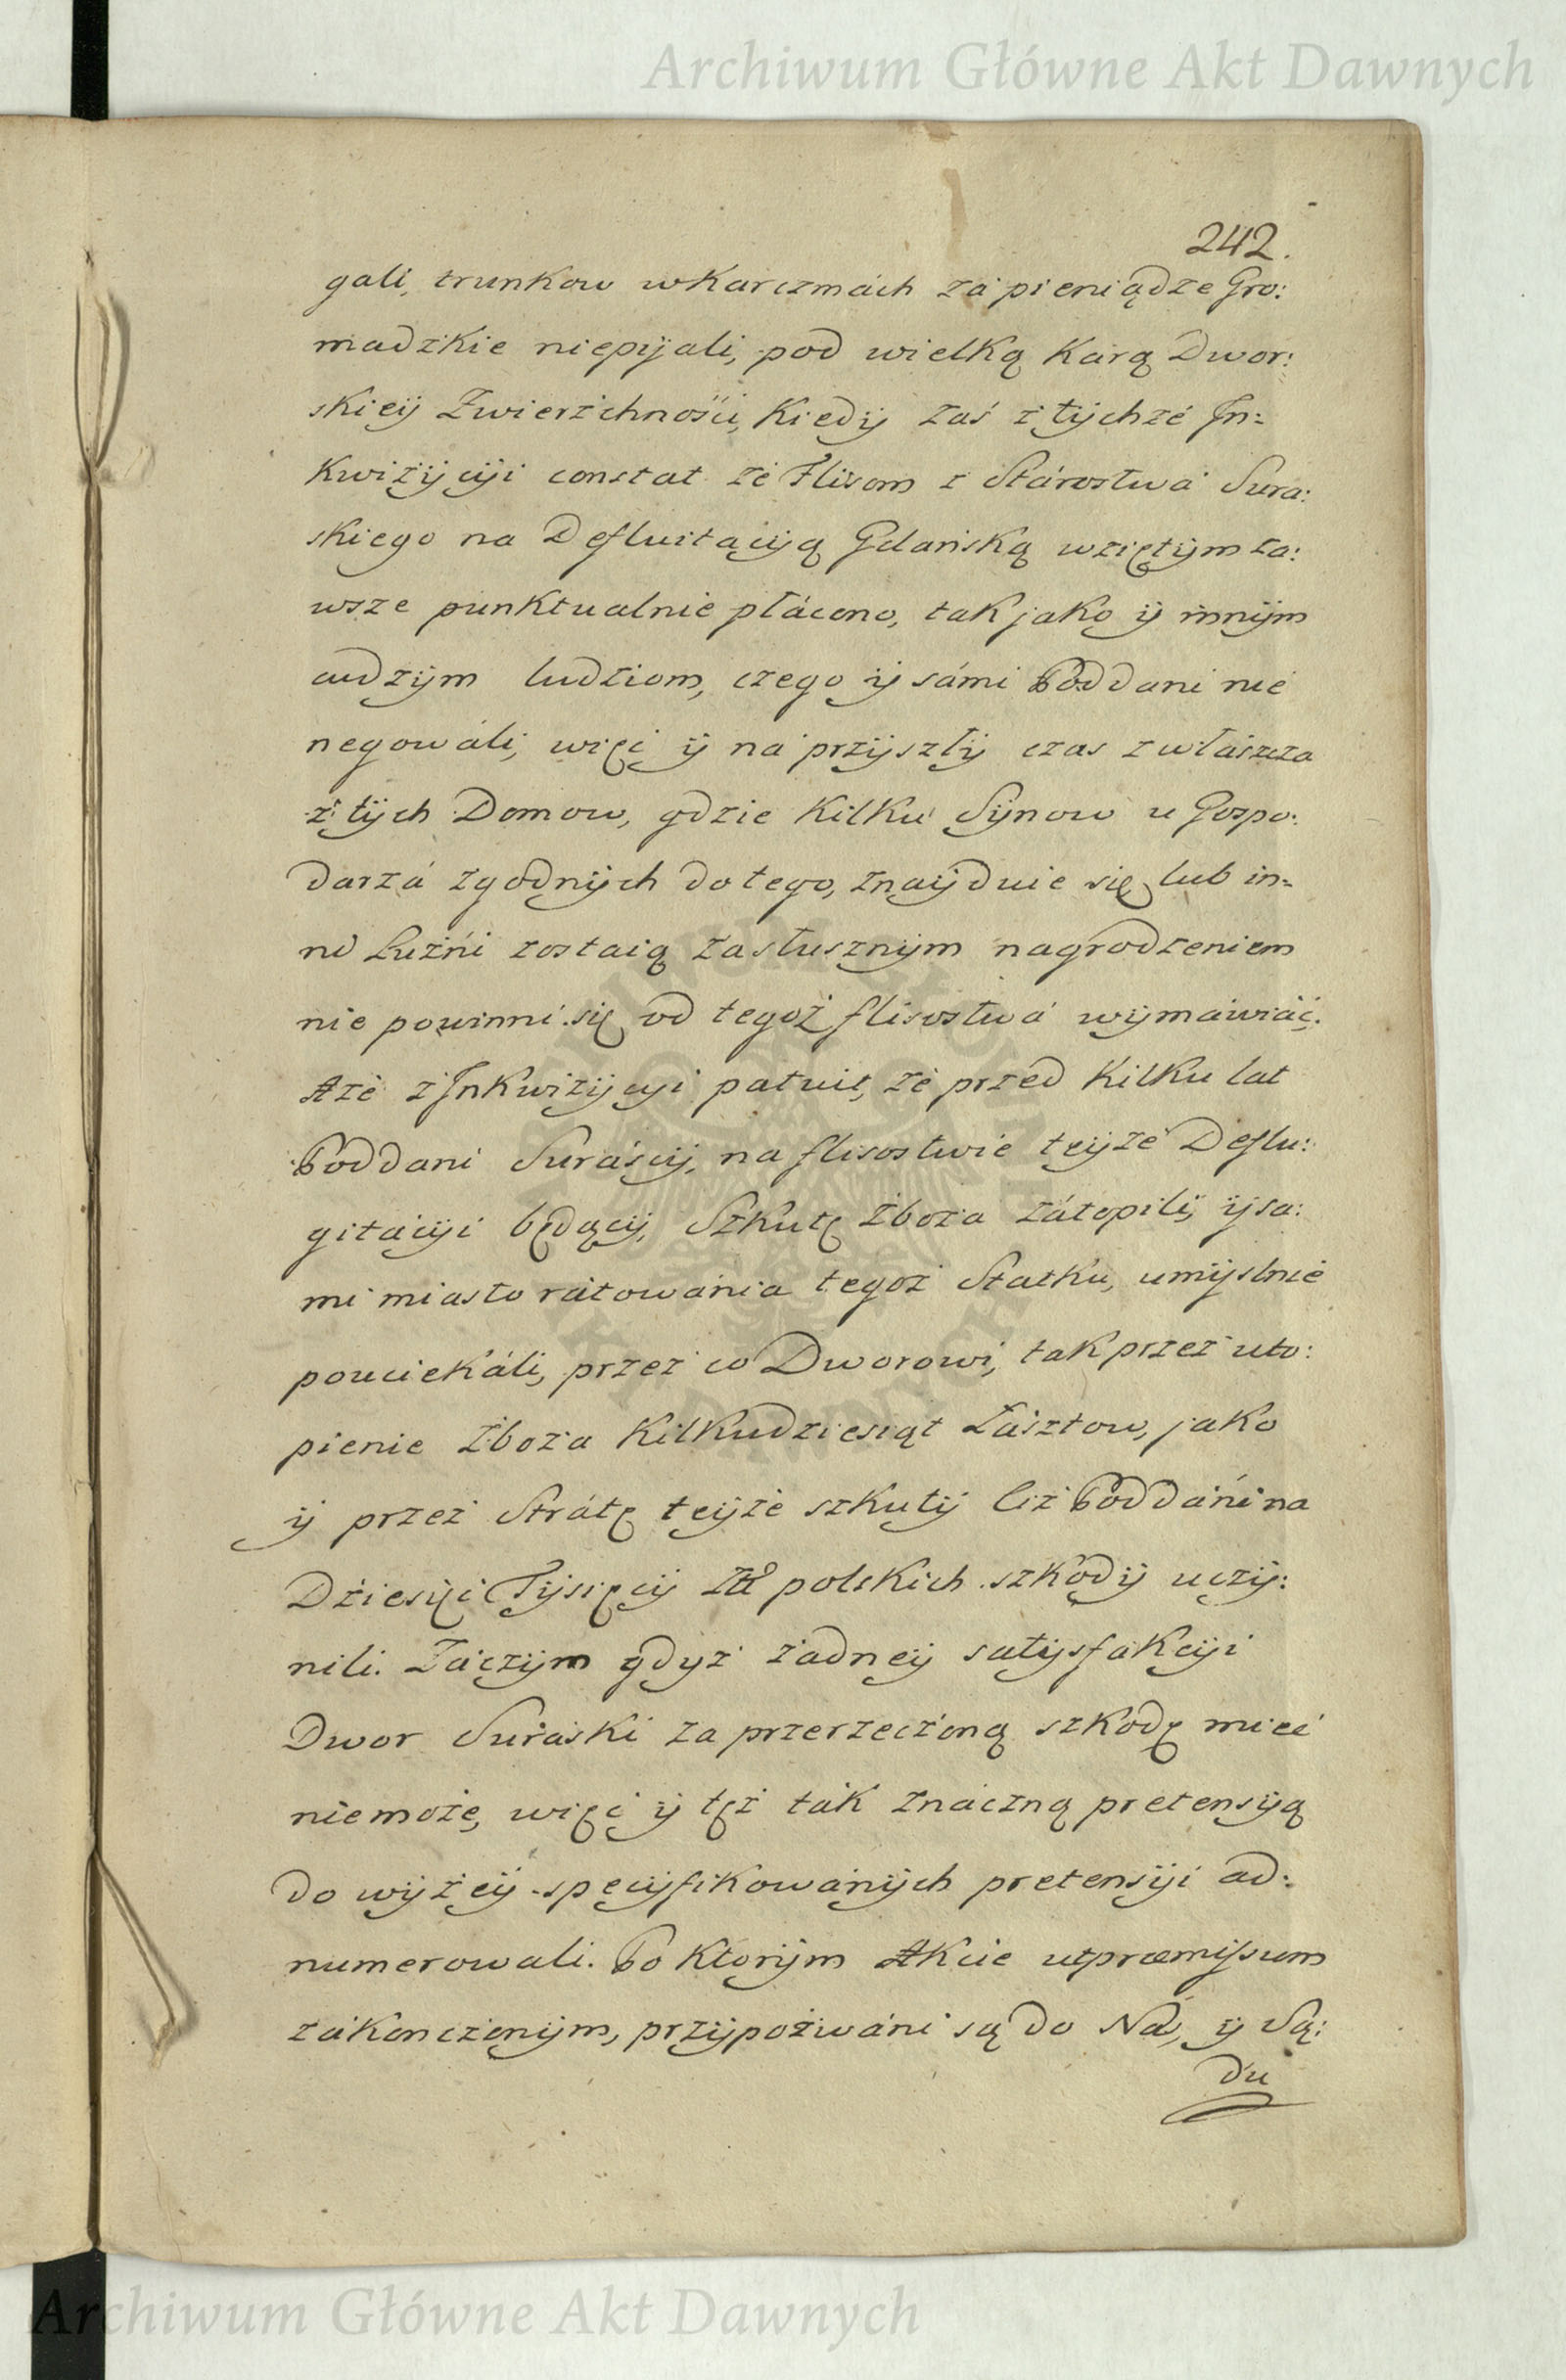 Archiwum Główne Akt Dawnych
242.
gali, trunkow w Karczmách zá pieniądze Gro:
madzkie niepijali, pod wielką Kárą Dwor:
skieÿ Zwierzchnośći, Kiedÿ zaś z tÿchże Jn=
Kwizÿcÿi constat że Flisom z Stárostwá Sura:
skiego na Defluitácÿą Gdańską wziętÿm za:
wsze punktualnie płácono, tak jako ÿ innÿm
cudzÿm ludziom, czego ÿ sámi Poddani nie
negowáli, więc ÿ ná przÿszłÿ czas zwłászcza
z tÿch Domow, gdzie Kilku Sÿnow u Gospo:
darzá zgodnÿch do tego, znaÿduie się, lub in=
ni Luźni zostaią zasłusznÿm nagrodzeniem
nie powinni się od tegoż flisostwá wÿmáwiáć.
A że z Jnkwizÿcÿi patuit, że przed Kilku lat
Poddani Suráscÿ, na flisostwie teÿże Deflu:
gitácÿi będącÿ, Szkutę Zboża zátopili, ÿ sa:
mi miasto rátowánia tegoż Statku, umÿslnie
pouciekáli, przez co Dworowi, tak przez uto:
pienie Zboża Kilkudziesiąt Łásztow, jako
ÿ przez Strátę teÿże szkutÿ ciż Poddáni na
Dziesięć Tÿsięcÿ Złł polskich szkodÿ uczÿ:
nili. Záczÿm gdyż żadneÿ satÿsfakcÿi
Dwor Suráski za przerzeczoną szkodę mieć
niemoże, więc ÿ tęż ták znáczną pretensÿą
do wÿżeÿ specÿfikowánÿch pretensÿi ad:
numerowali. Po Ktorÿm Akcie utpræmissum
zákonczonÿm, przÿpozwáni są do Nas, ÿ Są:
du
Archiwum Główne Akt Dawnych